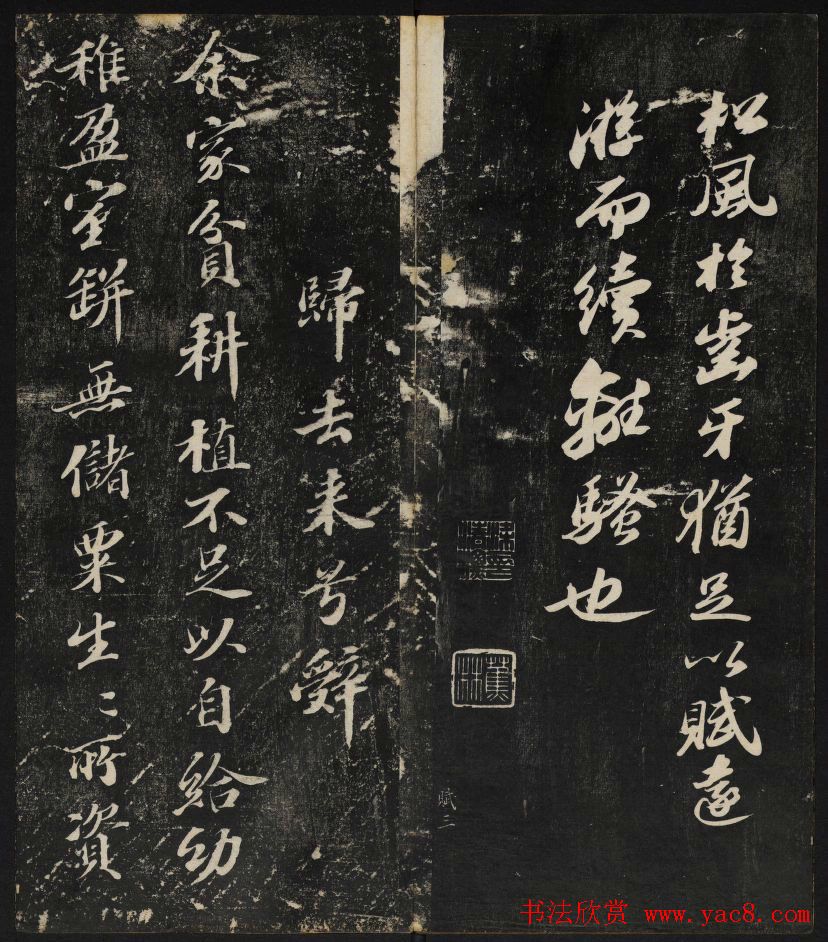 松風於齒牙猶足以賦遠
游而續離騷也
賦三
歸去来兮辭
余家貧耕植不足以自給幼
稚盈室缾無儲粟生〻所資
书法欣赏 www.yac8.com